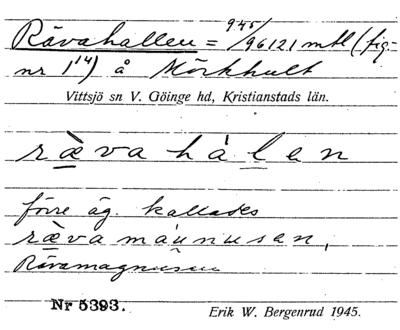 Rävahallen = 945/96121 mtl (fig-
nr 1¹⁴) å Mörkhult
Vittsjö sn V. Göinge hd, Kristianstads län.
ræva hàlen
förre äg. kallades
ræva mánnusen,
Rävamagnusen
Nr 5393.
Erik W. Bergenrud 1945.